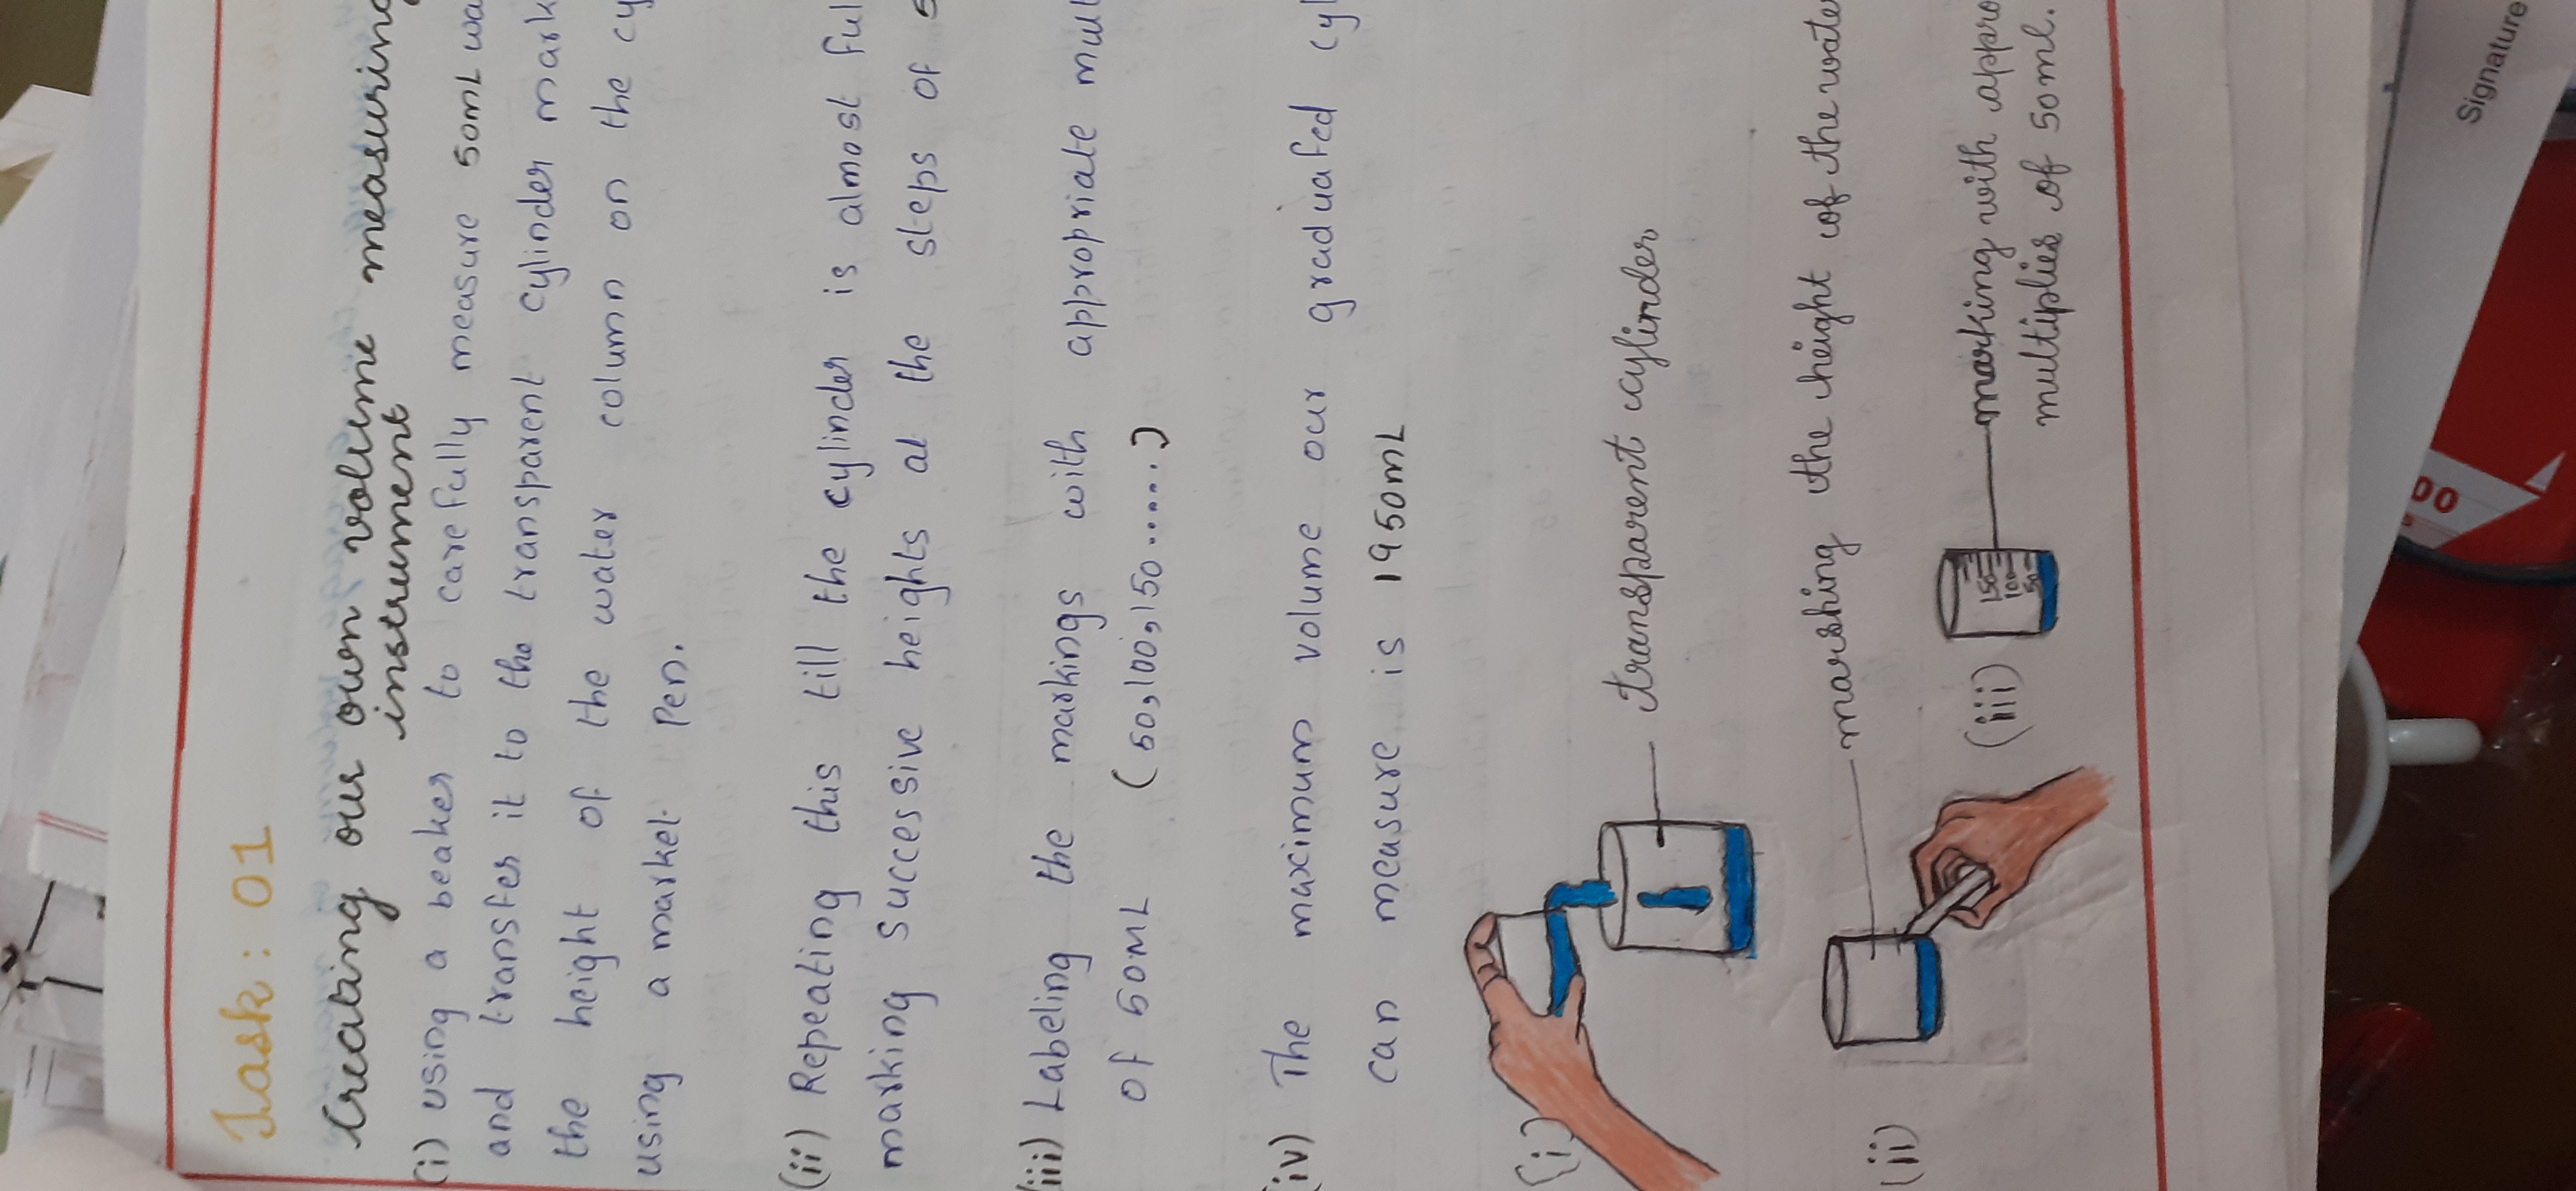 Task: 01
Creating our own volume measuring
instrument
(i) using a beaker to carefully measure 50mL wa
and transfer it to the transparent cylinder mark
the height of the water column on the cy
using a market Pen.
(ii) Repeating this till the cylinder is almost ful
marking successive heights at the steps of 5
(iii) Labeling the markings with appropriate mul
of 50mL (50,100,150......)
(iv) The maximum volume our graduated cyl
can measure is 1950mL
(i)
transparent cylinder
(ii)
marshing the height of the wate
(iii)
150
100
50
marking with appro
multiplies of 50ml.
Signature
00